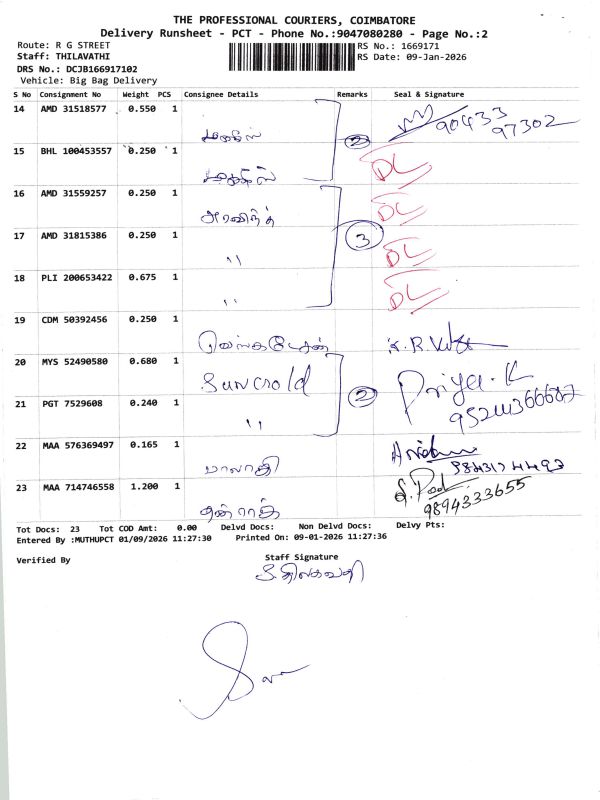 THE PROFESSIONAL COURIERS, COIMBATORE
Delivery Runsheet - PCT - Phone No.:9047080280 - Page No.:2
Route: R G STREET
RS No.: 1669171
Staff: THILAVATHI
RS Date: 09-Jan-2026
DRS No.: DCJB166917102
Vehicle: Big Bag Delivery
S No Consignment No Weight PCS Consignee Details Remarks Seal & Signature
14 AMD 31518577 0.550 1 2 90433 97302
15 BHL 100453557 0.250 1 DL
16 AMD 31559257 0.250 1 அரவிந்த் DL
17 AMD 31815386 0.250 1 " 3 DL
18 PLI 200653422 0.675 1 " DL
19 CDM 50392456 0.250 1
20 MYS 52490580 0.680 1 Priya. K
21 PGT 7529608 0.240 1 " 2
22 MAA 576369497 0.165 1 பாலாஜி
23 MAA 714746558 1.200 1 தன்ராஜ் 9894333655
Tot Docs: 23 Tot COD Amt: 0.00 Delvd Docs: Non Delvd Docs: Delvy Pts:
Entered By :MUTHUPCT 01/09/2026 11:27:30 Printed On: 09-01-2026 11:27:36
Verified By
Staff Signature